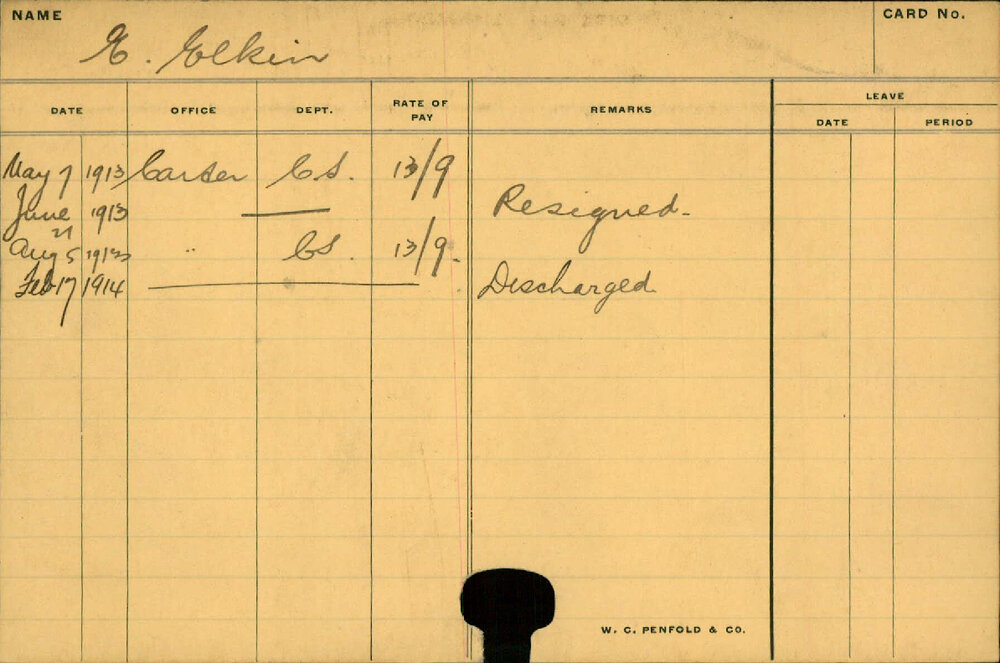 NAME
CARD No.
E. Elkin
LEAVE
DATE OFFICE DEPT. RATE OF PAY REMARKS DATE PERIOD
May 7 1913 Carter C.S. 13/9
June 21 1913 — Resigned.
Aug 5 1913 " CS. 13/9.
Feb 17 1914 — Discharged.
W. C. PENFOLD & CO.